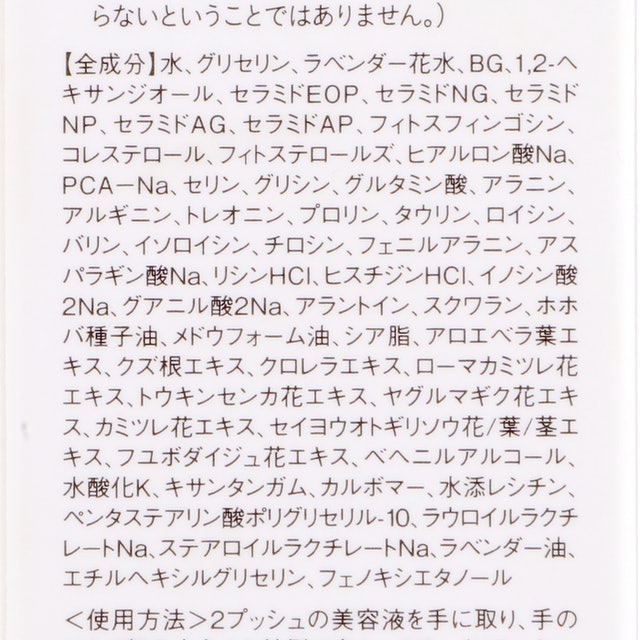 らないということではありません。)
【全成分】水、グリセリン、ラベンダー花水、BG、1,2-ヘ
キサンジオール、セラミドEOP、セラミドNG、セラミド
NP、セラミドAG、セラミドAP、フィトスフィンゴシン、
コレステロール、フィトステロールズ、ヒアルロン酸Na、
PCA－Na、セリン、グリシン、グルタミン酸、アラニン、
アルギニン、トレオニン、プロリン、タウリン、ロイシン、
バリン、イソロイシン、チロシン、フェニルアラニン、アス
パラギン酸Na、リシンHCl、ヒスチジンHCl、イノシン酸
2Na、グアニル酸2Na、アラントイン、スクワラン、ホホ
バ種子油、メドウフォーム油、シア脂、アロエベラ葉エ
キス、クズ根エキス、クロレラエキス、ローマカミツレ花
エキス、トウキンセンカ花エキス、ヤグルマギク花エキ
ス、カミツレ花エキス、セイヨウオトギリソウ花/葉/茎エ
キス、フユボダイジュ花エキス、ベヘニルアルコール、
水酸化K、キサンタンガム、カルボマー、水添レシチン、
ペンタステアリン酸ポリグリセリル-10、ラウロイルラクチ
レートNa、ステアロイルラクチレートNa、ラベンダー油、
エチルヘキシルグリセリン、フェノキシエタノール
＜使用方法＞2プッシュの美容液を手に取り、手の